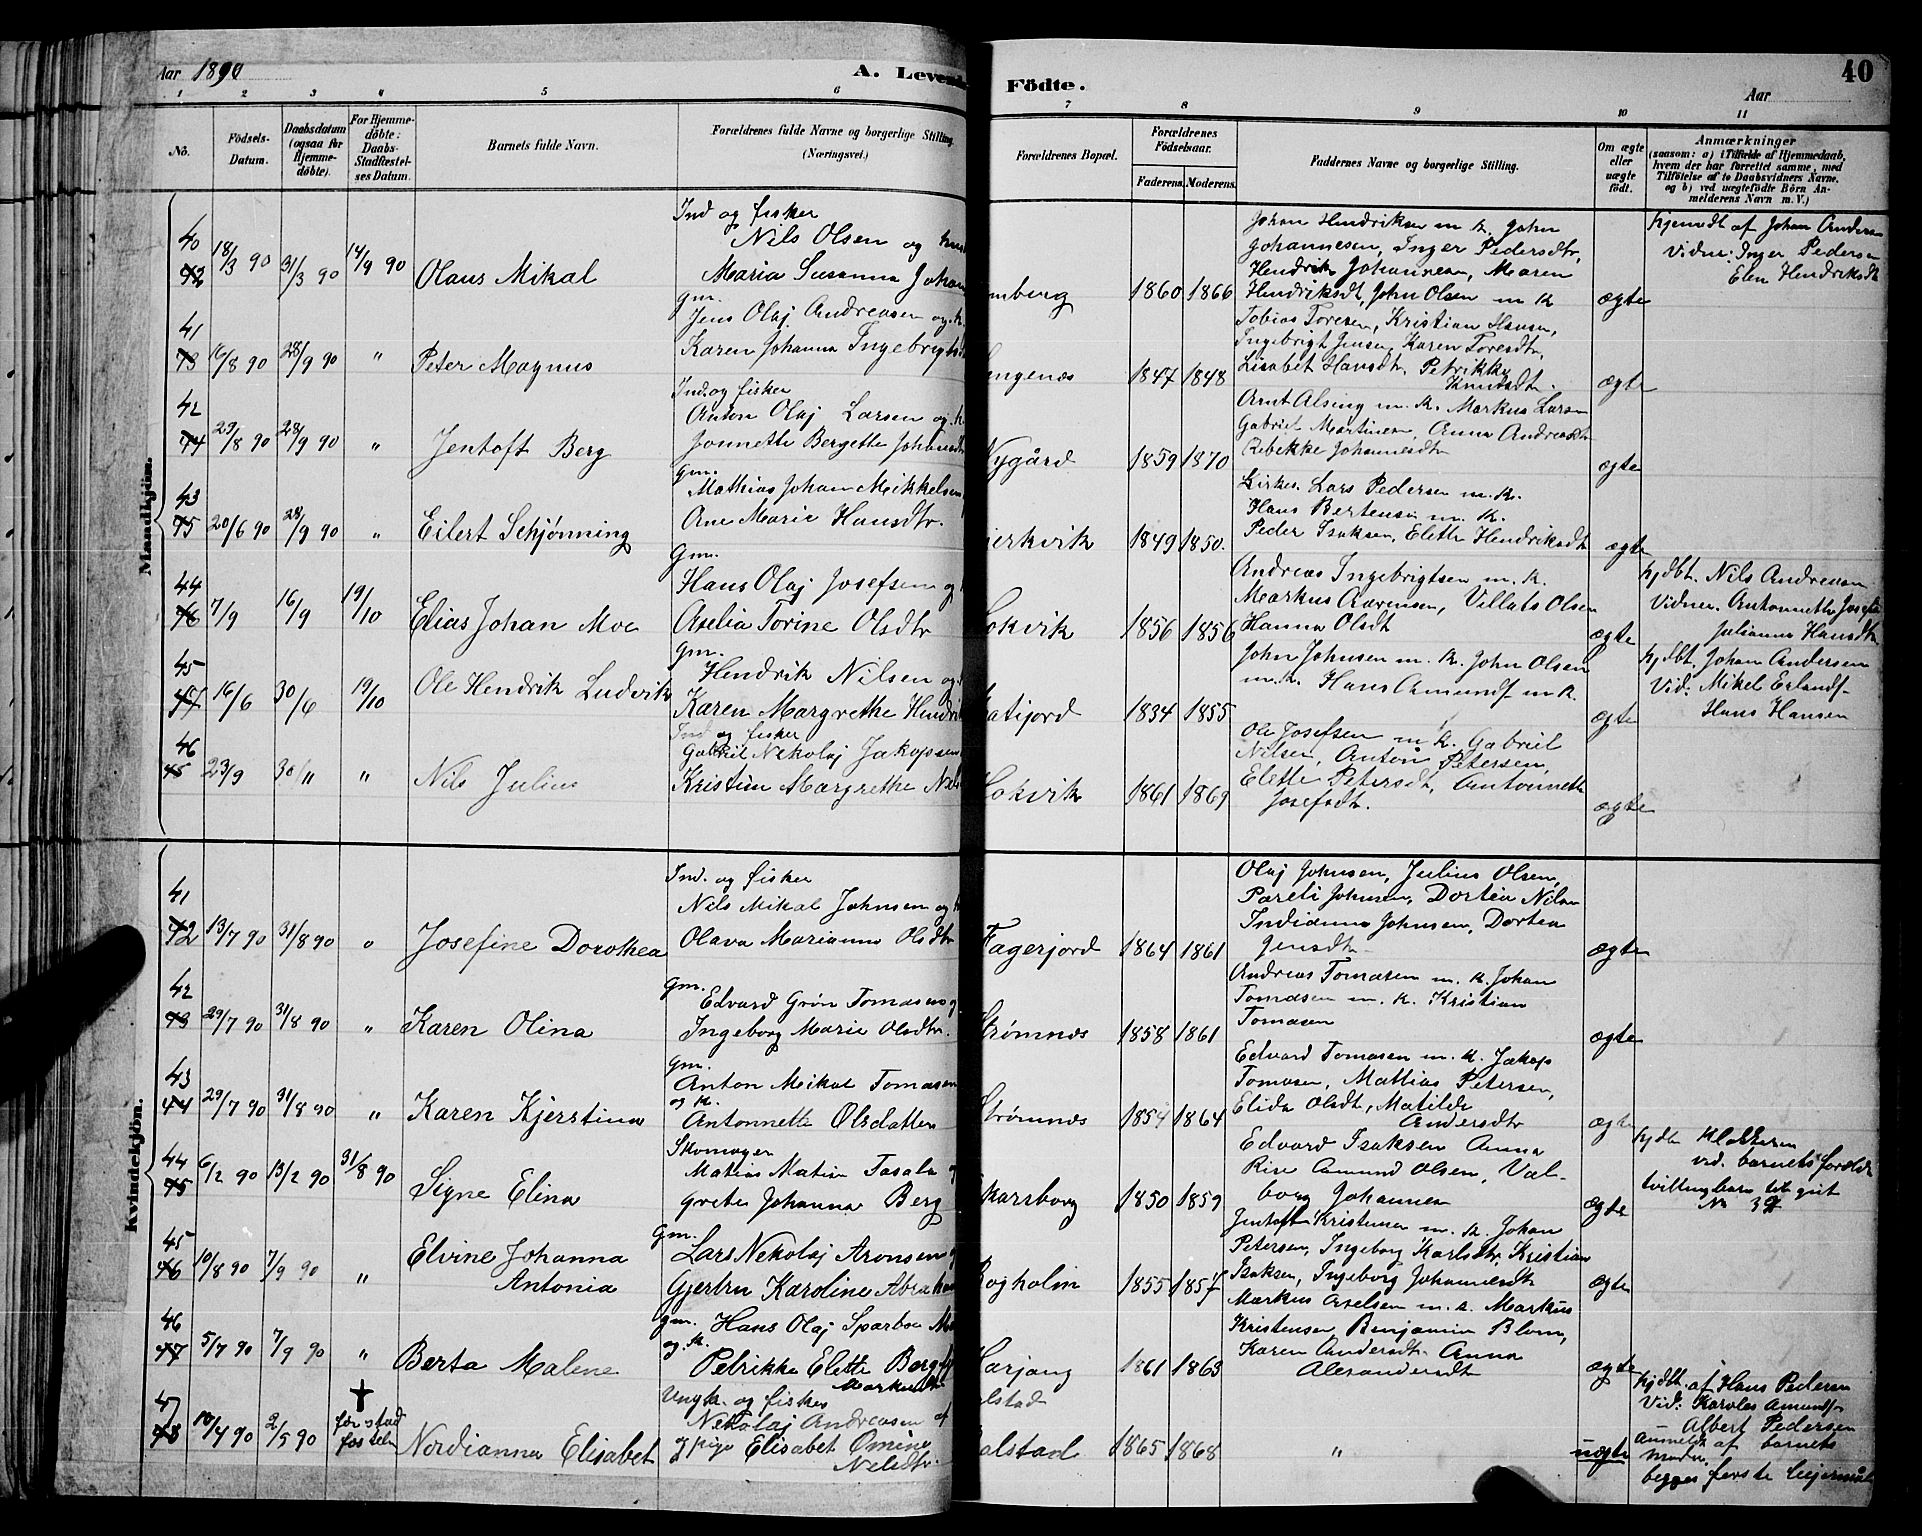 Aar 1890
A. Levende
Födte.
40
Aar
1 2 3 4 5 6 7 8 9 10 11
No.
Födsels-Datum.
Daabsdatum (ogsaa for Hjemme-døbte).
For Hjemme-døbte: Daabs-Stadfæstel-ses Datum.
Barnets fulde Navn.
Forældrenes fulde Navne og borgerlige Stilling. (Næringsvei.)
Forældrenes Bopæl.
Forældrenes Födselsaar.
Faderens. Moderens.
Faddernes Navne og borgerlige Stilling.
Om ægte eller uægte födt.
Anmærkninger
(saasom: a) i Tilfælde af Hjemmedaab,
hvem der har forrettet samme, med
Tilföielse af to Daabsvidners Navne.
og b) ved uægtefödte Börn An-
melderens Navn m. V.)
Mandkjön.
40 42 18/3 90 31/3 90 14/9 90 Olaus Mikal
Ind og fisker
Nils Olsen og
Maria Susanna Johan
mberg 1860 1866
Johan Hendriksen m. k. John
Johannesen, Inger Pedersdtr,
Hendrik Johannesen, Maren
Hendriksdt, John Olsen m k
ægte
hjemdt af Johan Anders
Vidne: Inger Peders
Elen Hendriksdt
41 43 16/8 90 28/9 90 " Peter Magnus
gm.
Jens Olaj Andreasen og k.
Karen Johanna Ingebrigts
ngenæs 1847 1848
Tobias Toresen, Kristian Hansen,
Ingebrigt Jensen, Karen Toresdtr,
Lisabet Hansdt, Petrikke
Knudsdt.
ægte
42 44 29/8 90 28/9 90 " Jentoft Berg
Ind. og fisker
Anton Olaj Larsen og k
Jonnette Bergette Johansdt
Nygård 1859 1870
Arnt Alsing m. k. Markus Larsen
Gabriel Martinsen, Anna Andreasdt
Rebekke Johannesdt
ægte
43 45 20/6 90 28/9 90 " Eilert Schjønning
gm.
Mathias Johan Mikkelsen
Ane Marie Hansdtr.
jerkvik 1849 1850.
Kirkes. Lars Pedersen m. k.
Hans Bertensen m. k.
Peder Isaksen, Elette Hendriksdt
ægte
44 46 7/9 16/9 19/10 Elias Johan Moe
Gm.
Hans Olaj Josefsen og
Axelia Torine Olsdtr
okvik 1856 1856
Andreas Ingebrigtsen m. k.
Markus Aarensen, Villats Olsen
Hanna Olsdt
ægte
hjdbt. Nils Andreasen
Vidner. Antonnette Josefs
Julianna Hansdt
45 47 16/6 30/6 19/10 Ole Hendrik Ludvik
gm.
Hendrik Nilsen og
Karen Margrethe Hendri
atijord 1834 1855
John Johnsen m. k. John Olsen
m. k. Hans Amundf m k.
ægte
hjdbt. Johan Andersen
Vid. Mikel Erlandf
Hans Hansen
46 45 23/9 30/11 " Nils Julius
Ind og fisker
Gabriel Nekolaj Jakopsen
Kristine Margrethe Nils
okvik 1861 1869
Ole Josefsen m k. Gabriel
Nilsen, Anton Petersen,
Elette Petersdt, Antonnette
Josefsdt.
ægte
Kvindekjön.
41 42 13/7 90 31/8 90 " Josefine Dorothea
Ind. og fisker
Nils Mikal Johnsen og
Olava Marianna Olsdtr
Fagerjord 1864 1861
Olaj Johnsen, Julius Olsen,
Pareli Johnsen, Dortea Nilsen
Indianna Johnsen, Dortea
Jensdt
ægte
42 43 29/7 90 31/8 90 " Karen Olina
gm.
Edvard Grøn Tomasen og
Ingeborg Marie Olsdtr.
Strømnes 1858 1861
Andreas Tomasen m. k. Johan
Tomasen m. k. Kristian
Tomasen
ægte
43 44 29/7 90 31/8 90 " Karen Kjerstina
gm.
Anton Mikal Tomasen
og k.
Antonnette Olsdatter
Strømnes 1854 1864
Edvard Tomasen m. k. Jakop
Tomasen, Mathias Petersen,
Elida Olsdt, Matilde
Andersdtr
ægte
44 45 6/2 90 13/2 90 31/8 90 Signe Elina
Skomager
Matias Matin Tasala
Grete Johanna Berg
karsborg 1850 1859
Edvard Isaksen Anna
Rise Amund Olsen, Val-
borg Johannes
ægte
hjdbt Klokkeren
vid. barnets foræld
tvillingbarn
No 39
45 46 10/8 90 7/9 90 " Elvine Johanna
Antonia
Gm.
Lars Nekolaj Aronsen
Gjertru Karoline Abraham
ogholm 1855 1857
Jentoft Kristensen m. k. Johan
Petersen, Ingeborg Karlsdtr, Kristian
Isaksen, Ingeborg Johannesdt
ægte
46 47 5/7 90 7/9 90 " Berta Malene
gm. Hans Olaj Sparboe
og. k.
Petrikke Elette Berg
Markusdt
Harjang 1861 1863
Markus Axelsen m. k. Markus
Kristensen, Benjamin Blom,
Karen Andersdt. Anna
Alexandersdt
ægte
47 48 10/4 90 2/5 90 † før stad
fæstelse Nordianna Elisabet
Ungk. og fisker
Nekolaj Andreasen af
og pige Elisabet Omine
Nelsdtr.
elstad
alstad 1865 1868
"
uægte
hjdbt. af Hans Pedersen
Vid. Karoles Amundf
Albert Pedersen
Anmeldt af barnets
moder.
begges første leiermål